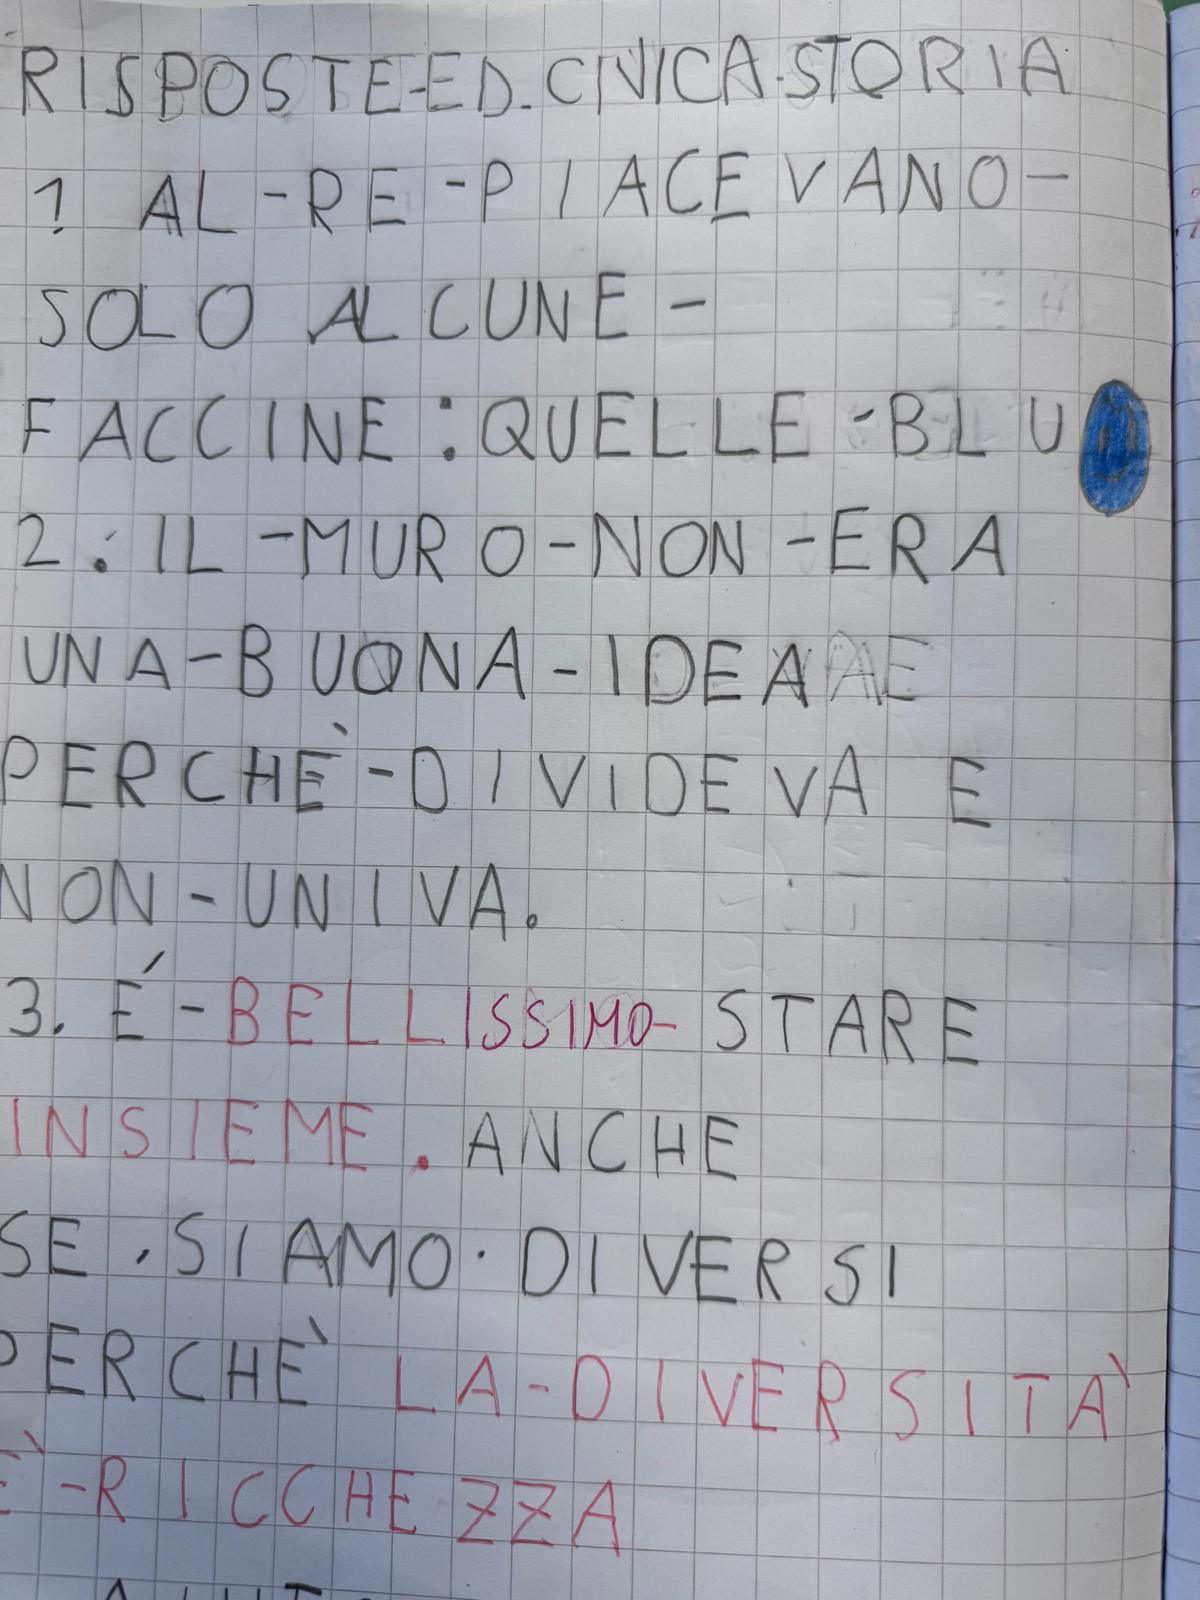 RISPOSTE-ED.CIVICA-STORIA
1 AL-RE-PIACEVANO-
SOLO ALCUNE-
FACCINE:QUELLE-BLU
2. IL-MURO-NON-ERA
UNA-BUONA-IDEA
PERCHÈ-DIVIDEVA E
NON-UNIVA.
3. É-BELLISSIMO-STARE
INSIEME.ANCHE
SE.SIAMO.DIVERSI
PERCHÈ LA-DIVERSITÀ
È-RICCHEZZA